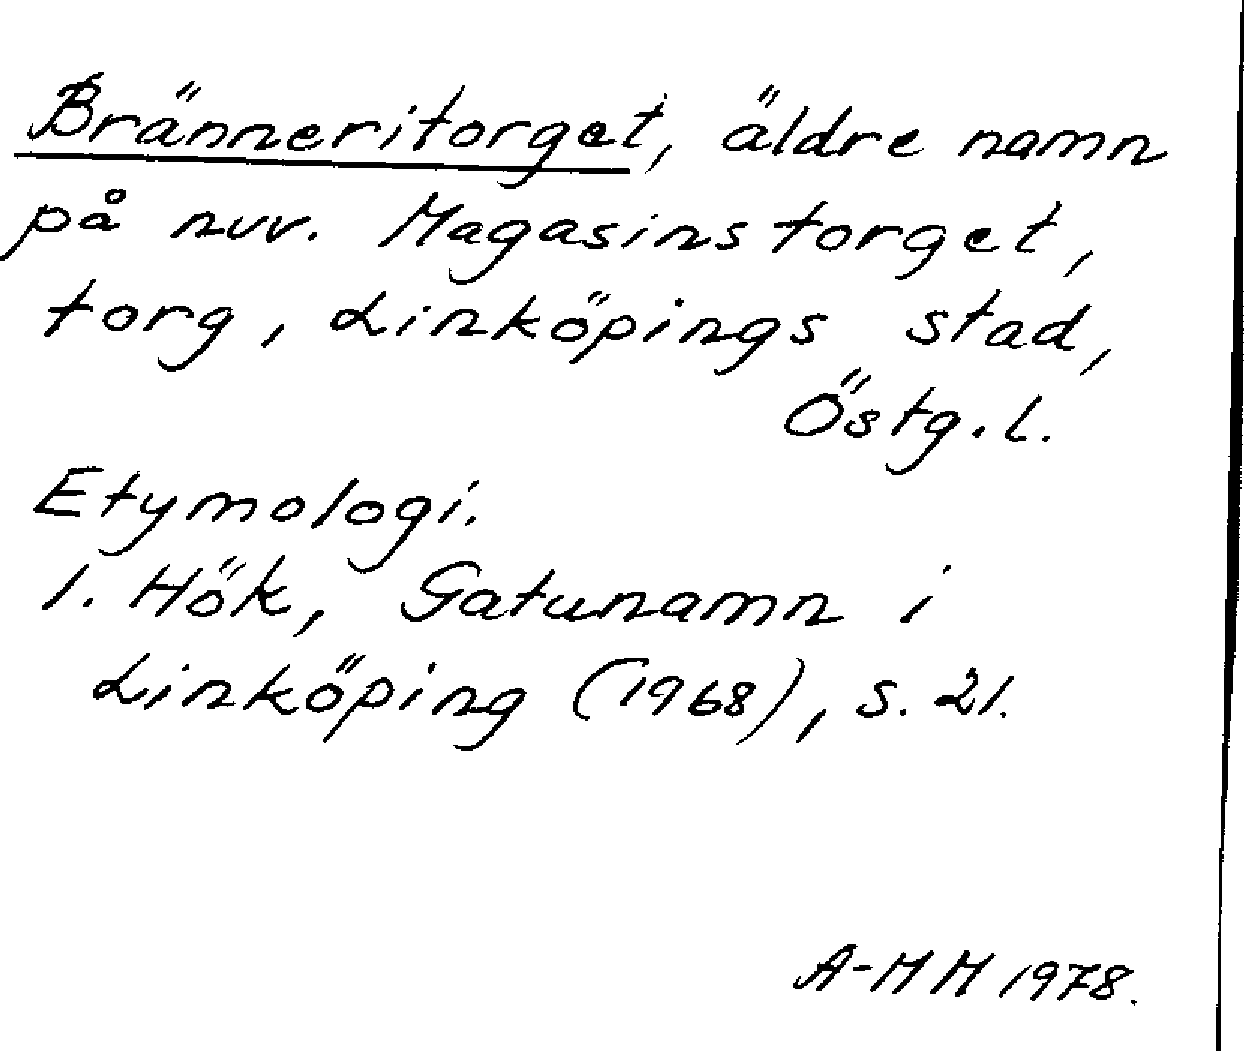 Bränneritorget, äldre namn
på nuv. Magasinstorget,
torg, Linköpings stad,
Östg.l.
Etymologi.
1. Hök, Gatunamn i
Linköping (1968), s. 21.
A-MM 1978.